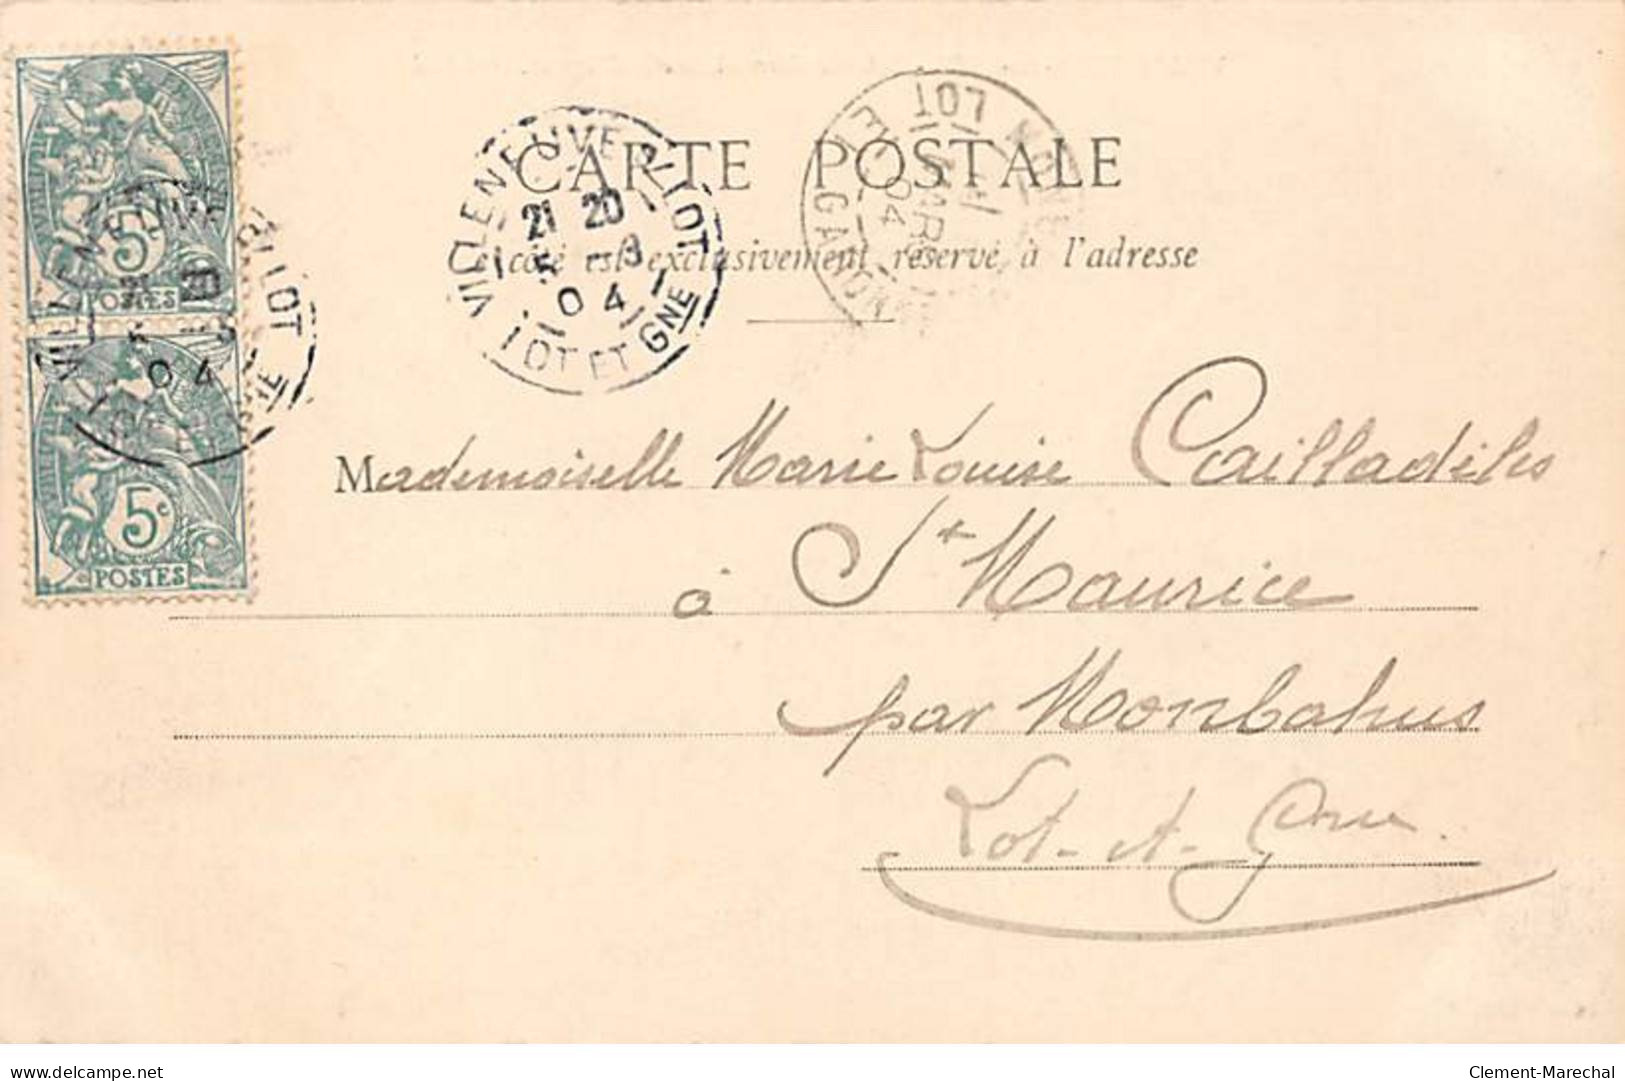 CARTE POSTALE
côté est exclusivement réservé à l'adresse
VILLENEUVE S/ LOT
21 20
5 - 3
04
LOT ET GNE
LOT ET GARONNE
04
5c
POSTES
5c
POSTES
Mademoiselle Marie Louise Cailladéles
à St Maurice
par Monbahus
Lot-et-Gne
www.delcampe.net
Clement-Marechal